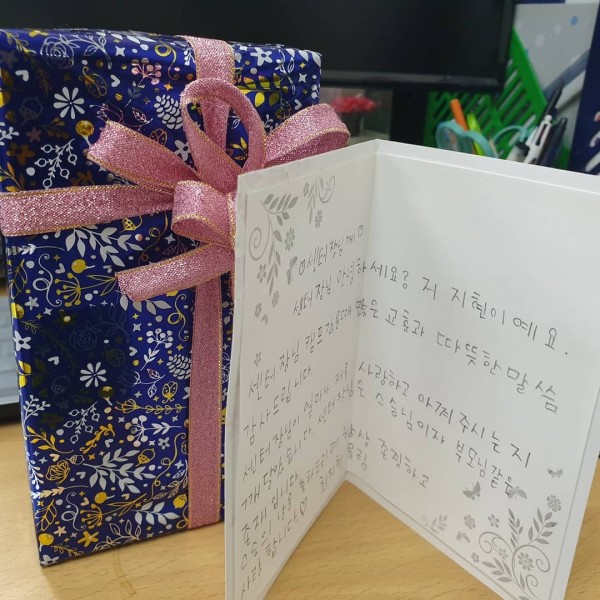 ♡센터장님께♡
센터장님 안녕하세요? 저 지현이예요.
센터장님 캠프 많은 교훈과 따뜻한 말씀
감사드립니다. 사랑하고 아껴주시는지
센터장님이 얼마나 저를 은 스승님이자 부모님같은
깨달았습니다. 센터장님 항상 존경하고
존재입니다.
사랑합니다.♡